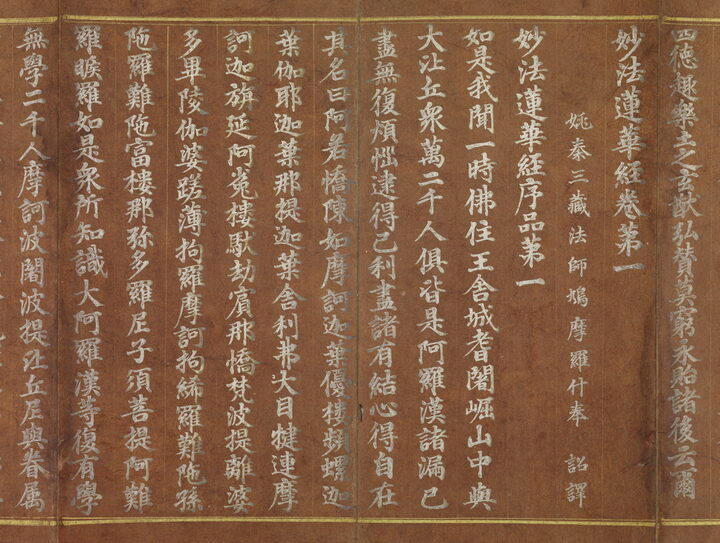 四德趣樂土之玄猷弘贊莫窮永貽諸後云爾
妙法蓮華經卷第一
姚秦三藏法師鳩摩羅什奉 詔譯
妙法蓮華經序品第一
如是我聞一時佛住王舍城耆闍崛山中與
大比丘衆萬二千人俱皆是阿羅漢諸漏已
盡無復煩惱逮得己利盡諸有結心得自在
其名曰阿若憍陳如摩訶迦葉優樓頻螺迦
葉伽耶迦葉那提迦葉舍利弗大目犍連摩
訶迦旃延阿㝹樓馱劫賓那憍梵波提離婆
多畢陵伽婆蹉薄拘羅摩訶拘絺羅難陁孫
陁羅難陁富樓那弥多羅尼子須菩提阿難
羅睺羅如是衆所知識大阿羅漢等復有學
無學二千人摩訶波闍波提比丘尼與眷属